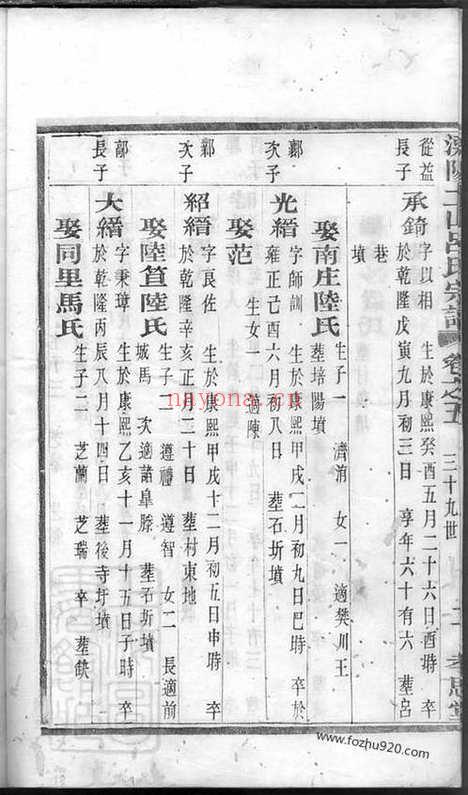 溧陽 呂氏宗譜 卷之五 三十九世 孝思堂
從益長子
承錡 字以相 生於康熙癸酉五月二十六日酉時 卒
於乾隆戊寅九月初三日 享年六十有六 葬呂
巷墳
娶南庄陸氏 生子一 濟淯 女一 適樊川王
葬培陽墳
鄴次子
光縉 字師訓 生於康熙甲戌 二月初九日巳時 卒於
雍正己酉六月初八日 葬石圻墳
娶范 生女一 適陳
鄴次子
紹縉 字良佐 生於康熙甲戌十二月初五日申時 卒
於乾隆辛亥正月二十日 葬村東地
娶陸笪陸氏 生子二 遵禮 遵智 女二 長適前
城馬 次適諸阜滕 葬石圻墳
鄗長子
大縉 字秉璋 生於康熙乙亥十一月十五日子時 卒
於乾隆丙辰八月十四日 葬後寺圩墳
娶同里馬氏 生子二 芝蘭 芝瑞 卒葬缺
nayona.cn
www.fozhu920.com